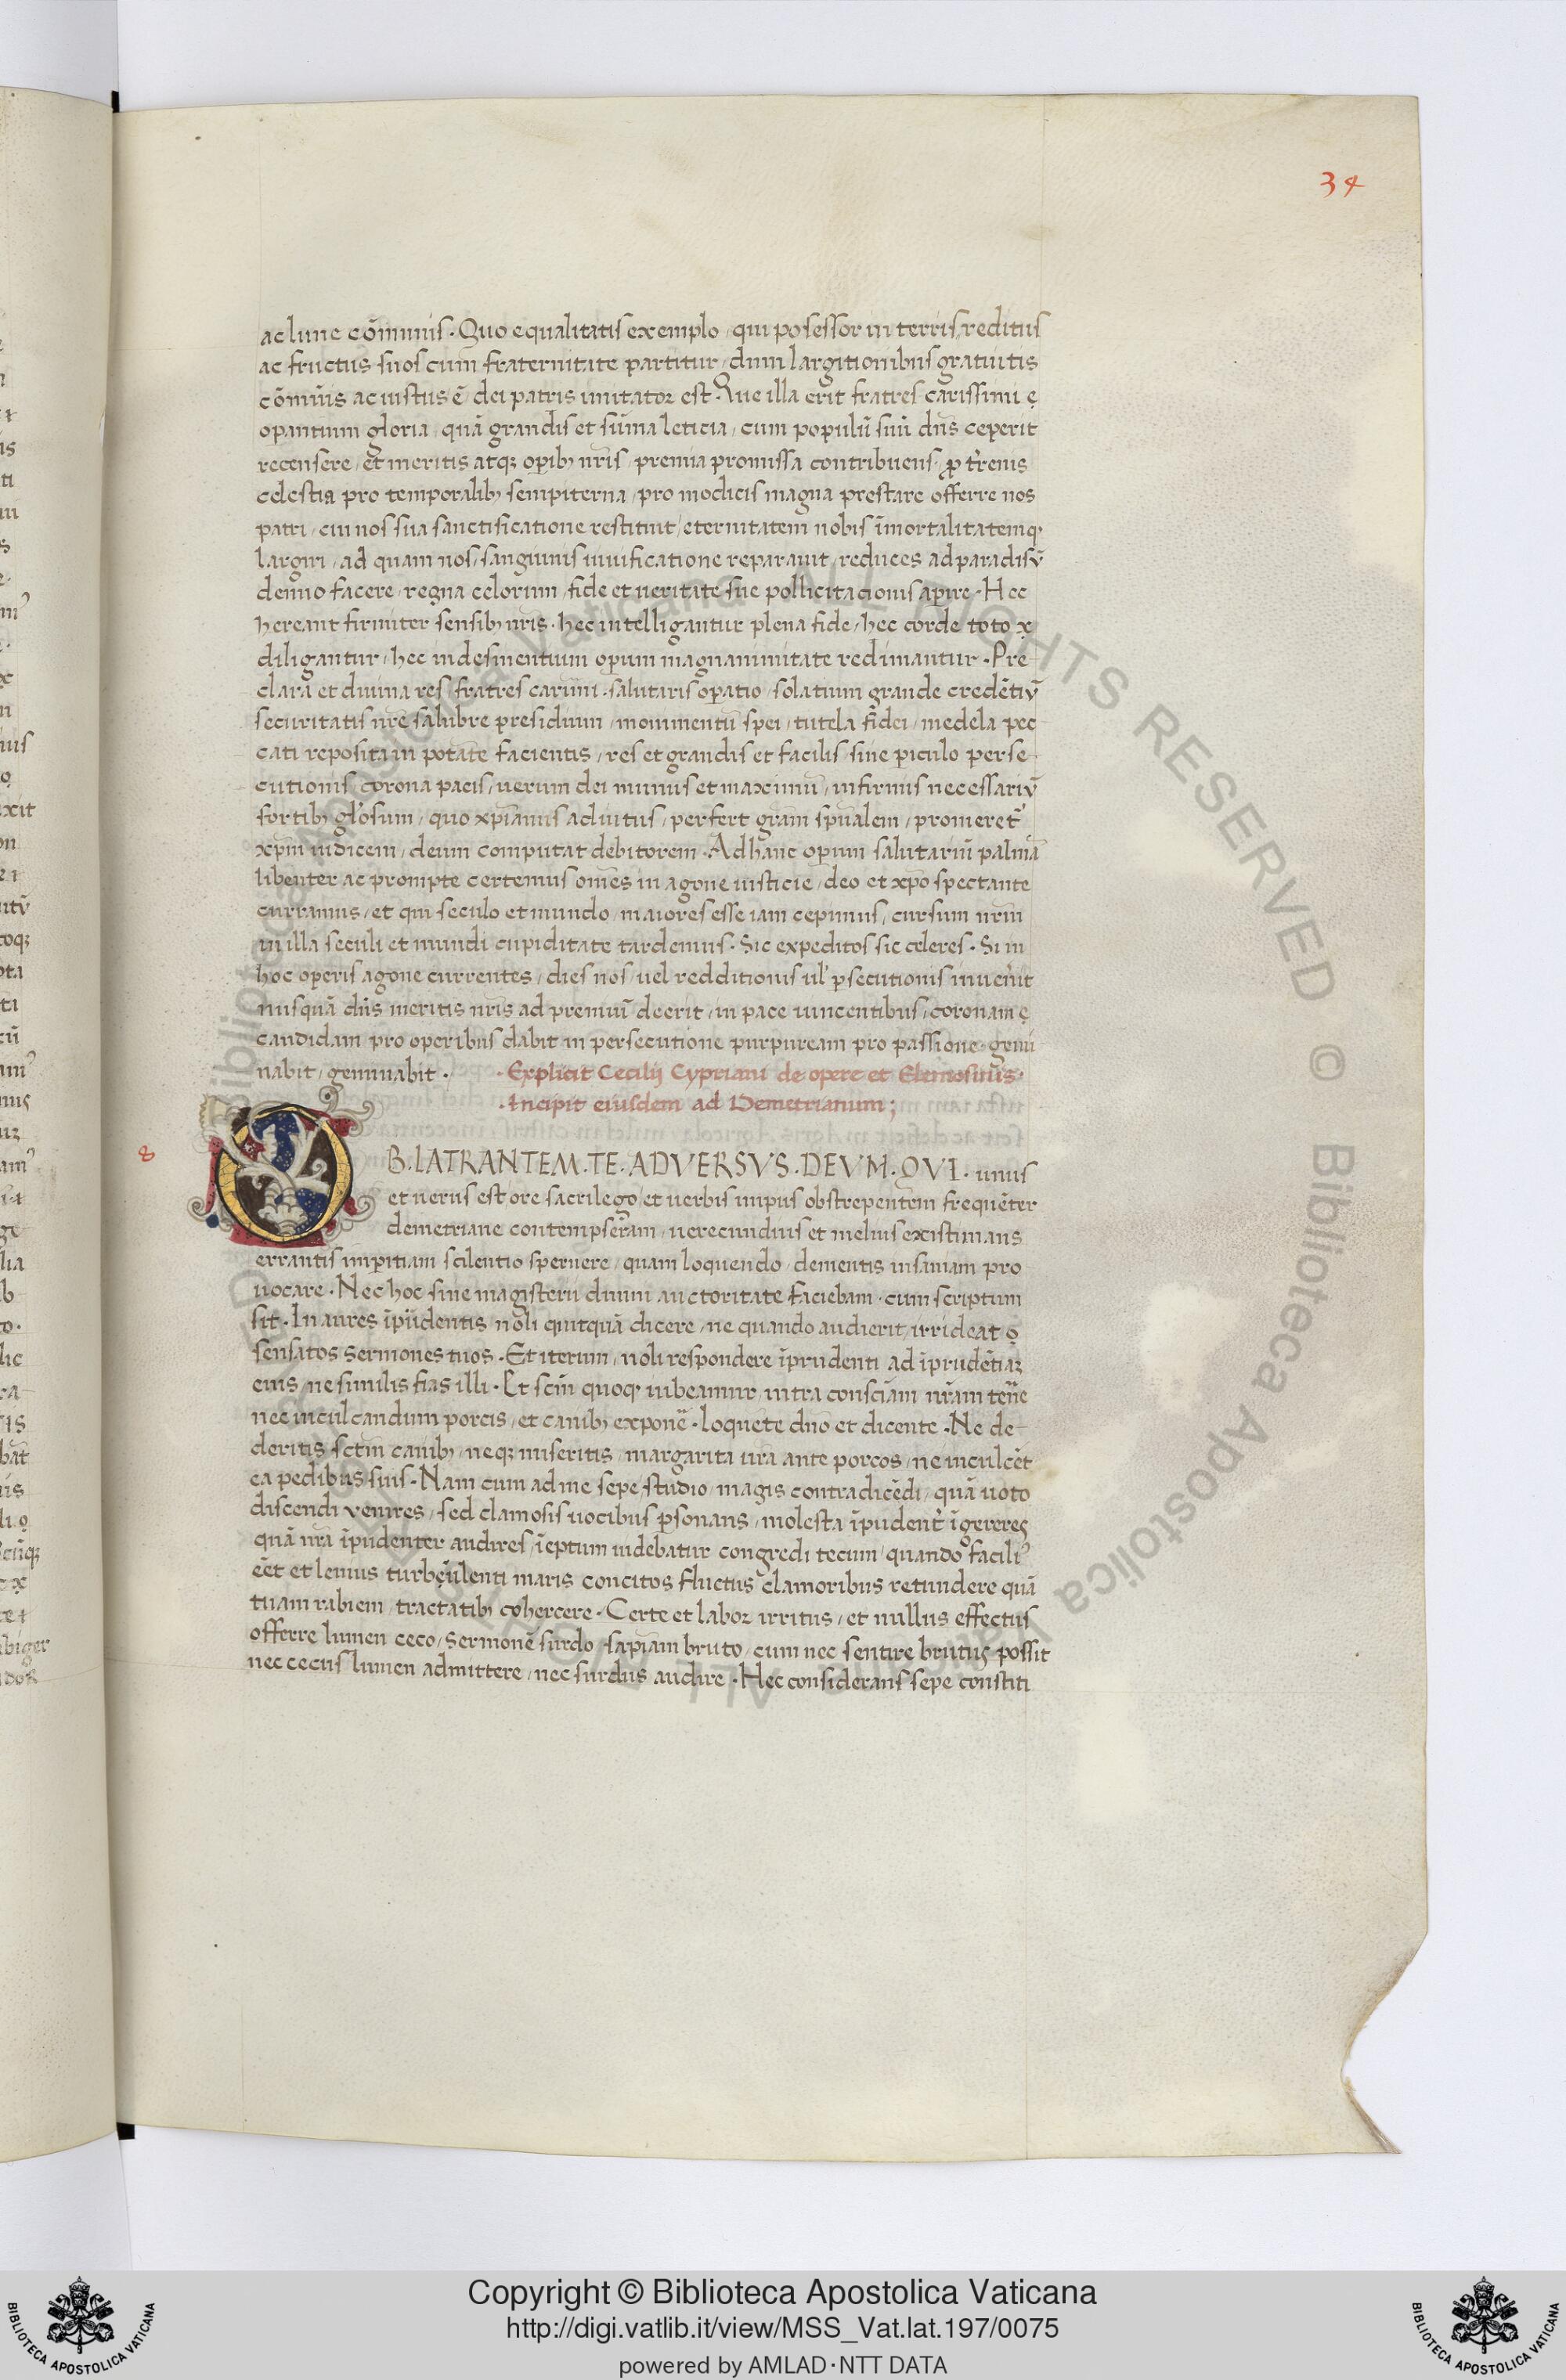 34
ac lune cōmunis · Quo equalitatis exemplo / qui posessor in terris / reditus
ac fructus suos cum fraternitate partitur / dum largitionibus gratuitis
cōmuīs ac iustus ē dei patris imitator est · Que illa erit fratres carissimi ę
opantium gloria / quā grandis et sūma leticia / cum populū suū dn̄s ceperit
recensere / et meritis atqꝫ opibꝫ nr̄is / premia promissa contribuens / ꝓ tr̄enis
celestia pro temporalibꝫ sempiterna / pro modicis magna prestare offerre nos
patri / cui nos sua sanctificatione restituit / eternitatem nobis īmortalitatemqꝫ
largiri / ad quam nos / sanguinis uiuificatione reparauit / reduces ad paradisū
denuo facere / regna celorum / fide et ueritate sue pollicitacionis apire · Hec
hereant firmiter sensibꝫ nr̄is · hec intelligantur plena fide / hec corde toto ꝫ
diligantur / hec indesinentium opum magnanimitate redimantur · Pre-
clara et diuina res / fratres carimi · salutaris opatio / solatium grande credētiū
securitatis nr̄e salubre presidium / munimentū spei / tutela fidei / medela pec
cati reposita in potāte facientis / res et grandis et facilis sine piculo perse-
cutionis corona pacis / uerum dei munus et maximū / infirmis necessariū
fortibꝫ gl'osum / quo xp̄ianus adiutus / perfert grām spūalem / promeret'
xp̄m iudicem / deum computat debitorem · Ad hanc opum salutariū palmā
libenter ac prompte certemus om̄es in agone iusticie / deo et xp̄o spectante
curramus / et qui seculo et mundo / maiores esse iam cepimus / cursum nrm̄
in illa seculi et mundi cupiditate tardemus · Sic expeditos sic celeres · Si in
hoc operis agone currentes / dies nos / uel redditionis ul' psecutionis inuen'it
nusquā dn̄s meritis nr̄is ad premiū deerit / in pace uincentibus / coronam ę
candidam pro operibus dabit in persecutione purpuream pro passione · gemi
nabit / geminabit ·
· Explicit Cecilij Cypriani de opere et Elemosinis ·
· Incipit eiusdem ad Demetrianum ;
8
OB · LATRANTEM · TE · ADVERSVS · DEVM · QVI · unus
et uerus est / ore sacrilego / et uerbis impiis obstrepentem frequēter
demetriane contempseram / uerecundius et melius existimans
errantis impitiam scilentio spernere / quam loquendo / dementis insaniam pro
uocare · Nec hoc sine magisterii diuini auctoritate faciebam · cum scriptum
sit · In aures īpūdentis noli quitquā dicere / ne quando audierit / irrideat ọ
sensatos sermones tuos · Et iterum / noli respondere īprudenti ad īprudētiaꝫ
eius / ne similis fias illi · Et scīn quoqꝫ iubeamur / intra consciām nr̄am ten̄e
nec inculcandum porcis / et canibꝫ expone͞ · loquēte dn̄o et dicente · Ne de-
deritis sctm̄ canibꝫ / neqꝫ miseritis / margarita ur̄a ante porcos / ne inculcēt
ea pedibus suis · Nam cum ad me sepe / studio / magis contradicēdi / quā uoto
discendi venires / sed clamosis uocibus psonans / molesta īpudent' īgereres
quā nr̄a īpudenter audires / īeptum uidebatur congredi tecum / quando facili'
eēt et lenius turbēulenti maris concitos fluctus clamoribus retundere quā
tuam rabiem / tractatibꝫ cohercere · Certe et labor irritus / et nullus effectus
offerre lumen ceco / sermonē surdo / sapiam bruto / cum nec sentire brutus possit
nec cecus lumen admittere / nec surdus audire · Hec considerans sepe constiti
Copyright © Biblioteca Apostolica Vaticana
http://digi.vatlib.it/view/MSS_Vat.lat.197/0075
powered by AMLAD·NTT DATA
BIBLIOTECA APOSTOLICA VATICANA
BIBLIOTECA APOSTOLICA VATICANA